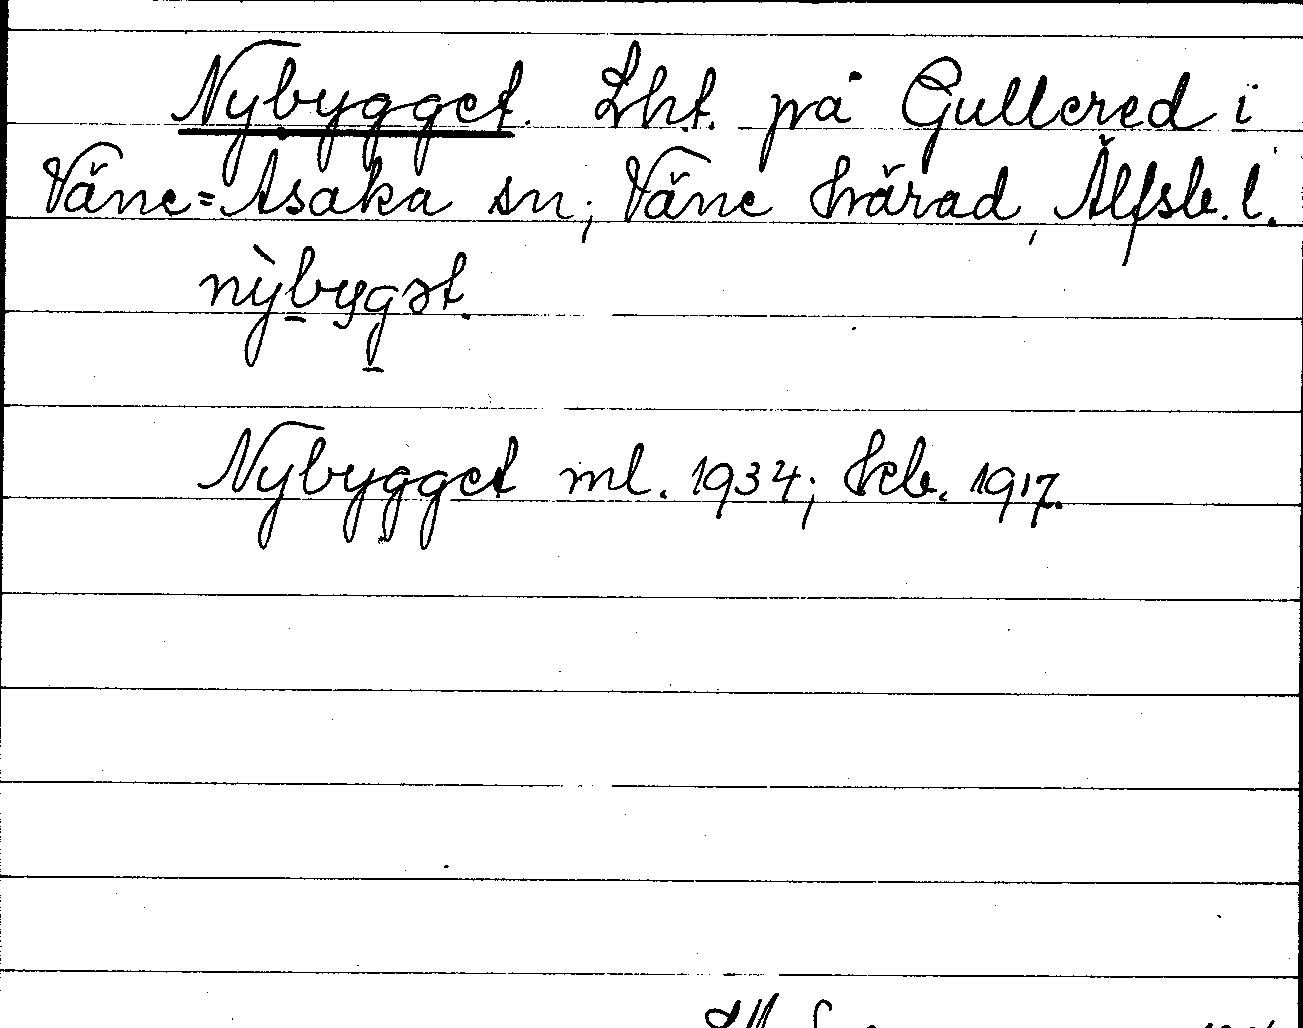 Nybygget. Lht. på Gullered i
Väne=Åsaka sn; Väne härad, Älfsb. l.
nỳbygət.
Nybygget ml. 1934; hcb. 1917.